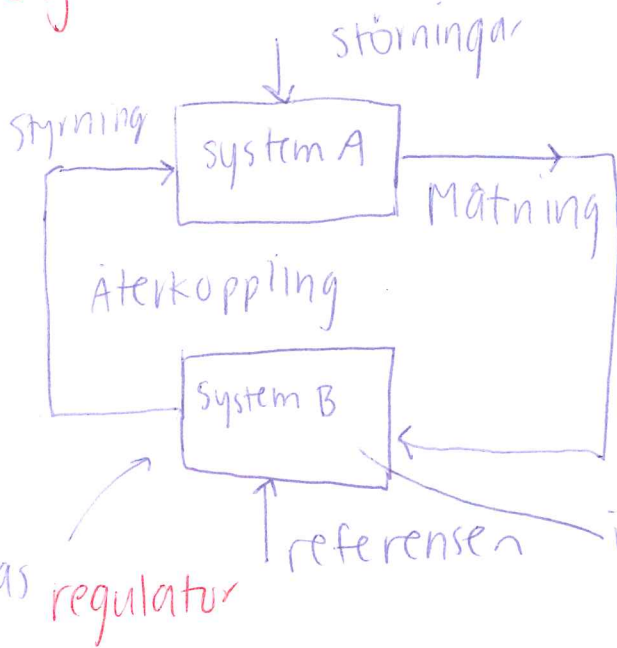 störningar
styrning
system A
Mätning
Återkoppling
System B
referensen
as regulator